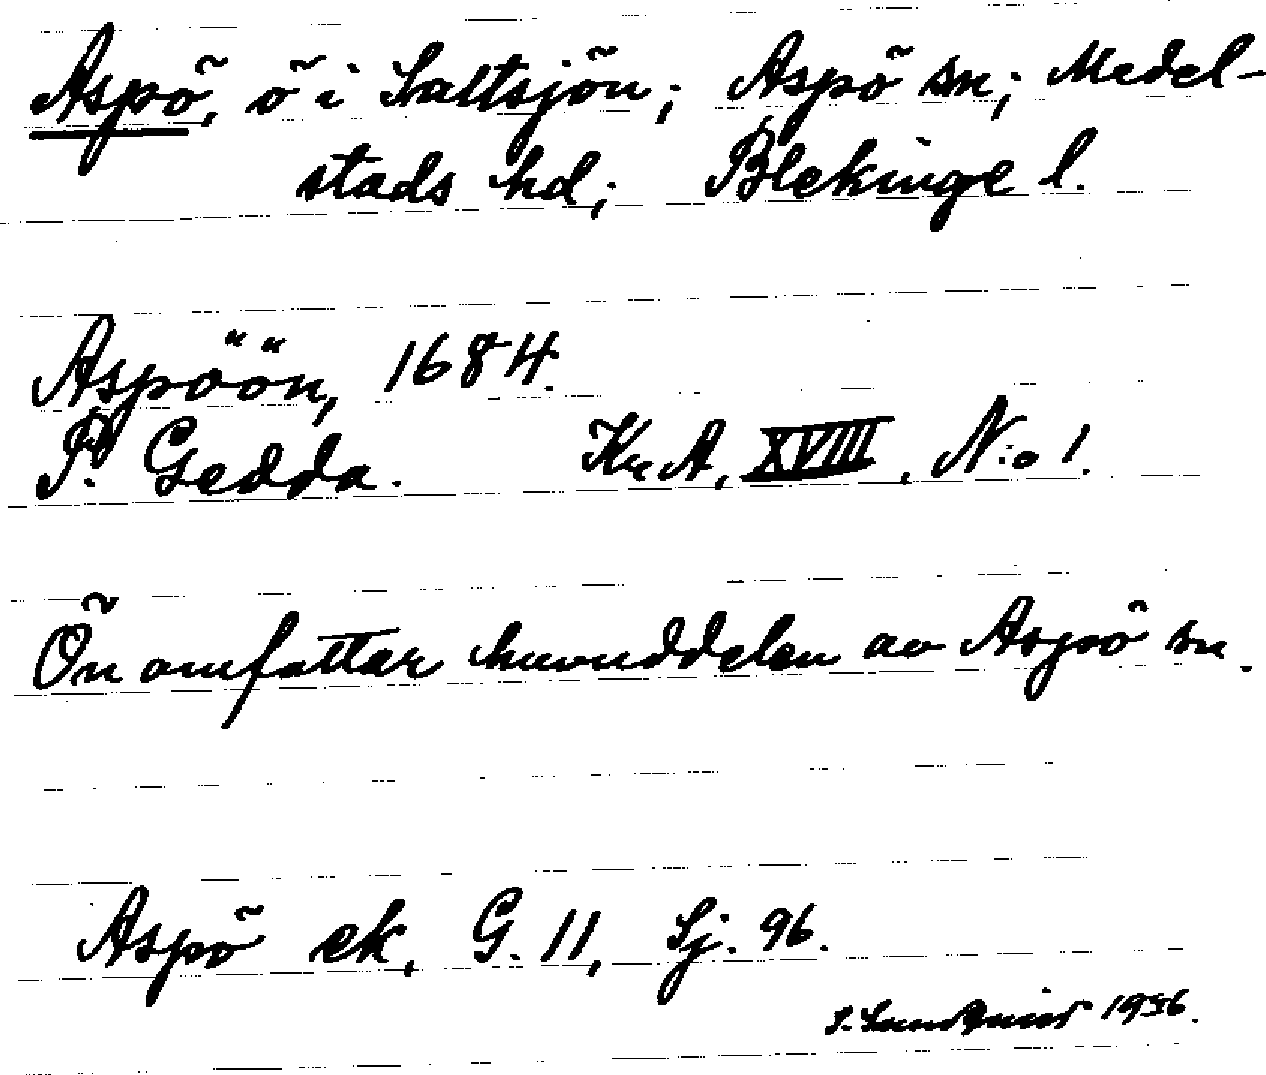 Aspö, ö i Saltsjön; Aspö sn; Medel-
stads hd; Blekinge l.
Aspöön, 1684.
P. Gedda. Kr A, XVIII, N:o 1.
Ön omfattar huvuddelen av Aspö sn.
Aspö ek. G. 11, Sj. 96.
S. Sundquist 1956.